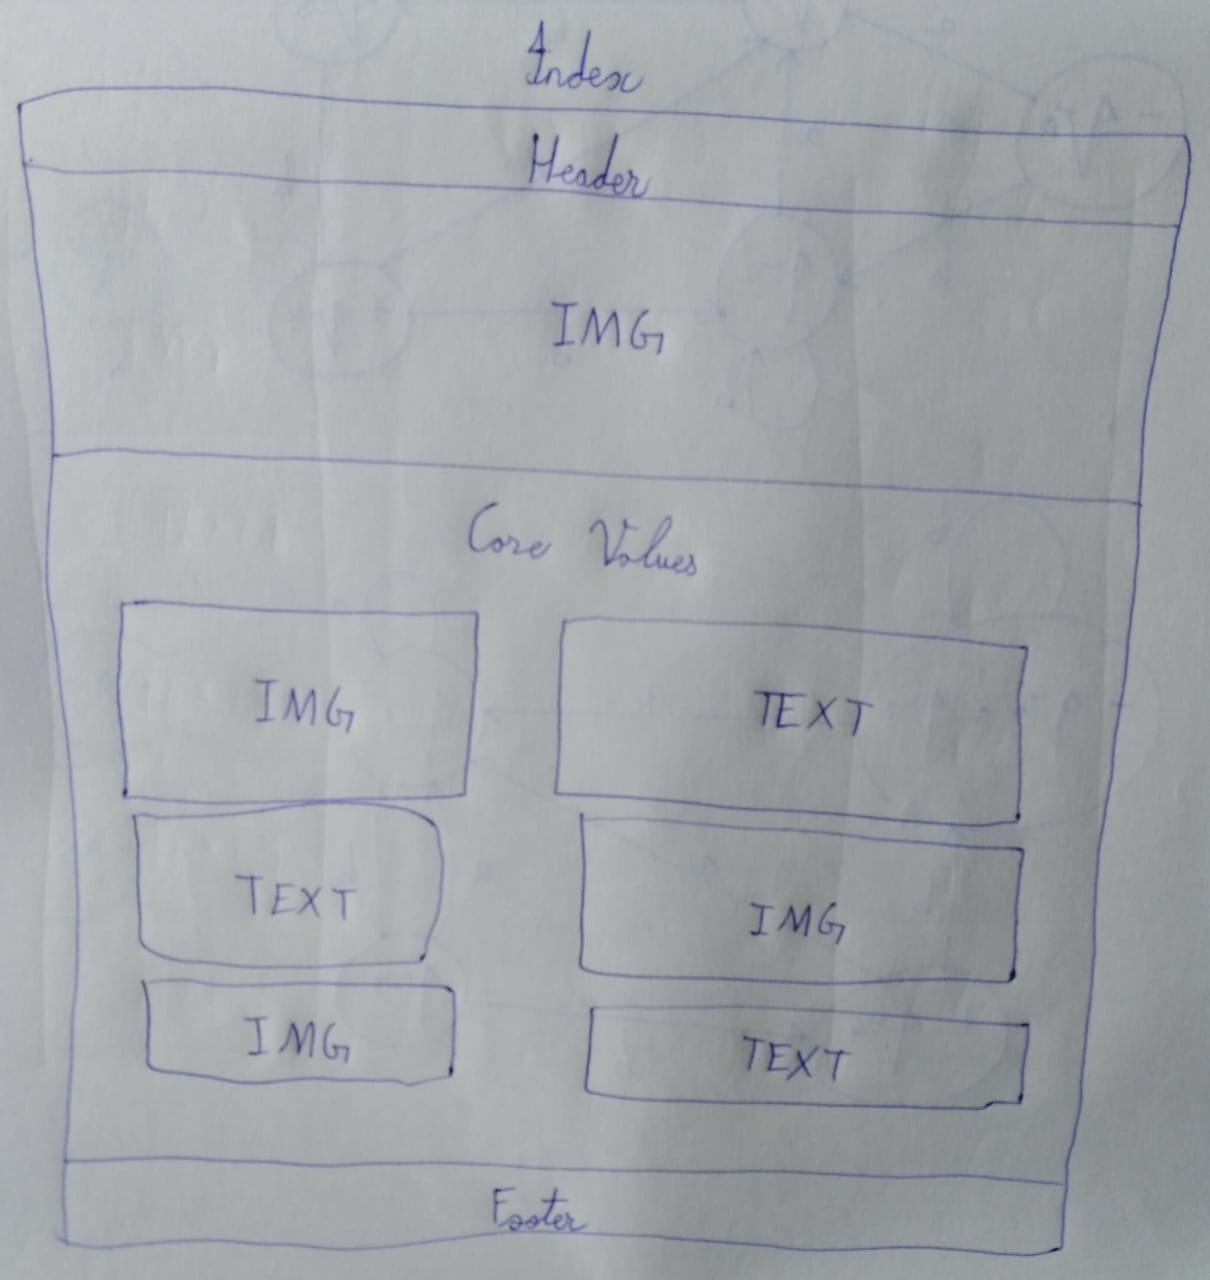 Index
Header
IMG
Core Values
IMG TEXT
TEXT IMG
IMG TEXT
Footer